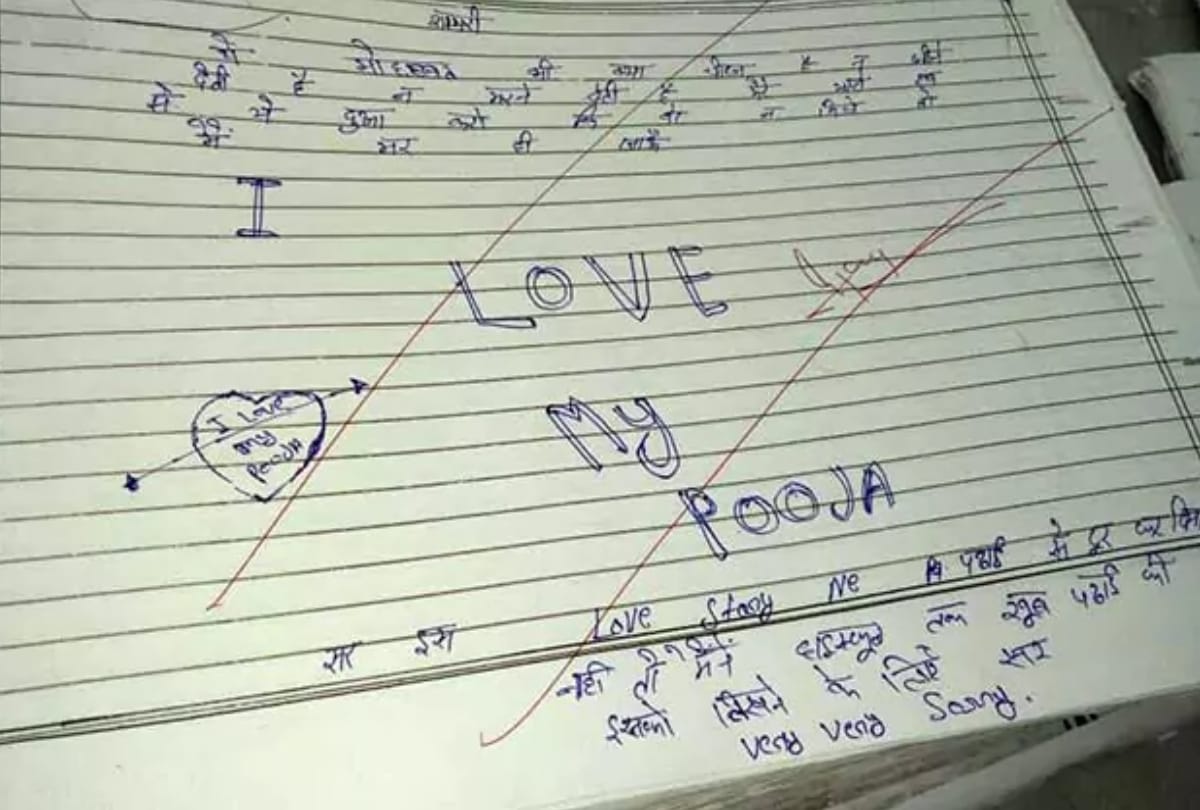 शायरी
ये मोहब्बत भी क्या चीज है न जीने
देती है न मरने देती है
से ये दुआ करो कि वो न मिले तो
मैं मर ही जाऊँ
I
LOVE
I Love
my
pooja
My
POOJA
सर इस Love Story Ne पढाई से दूर कर दिया
नही तो मैंने हाईस्कूल तक खूब पढाई की
इसको लिखने के लिए सर
very very Sorry.